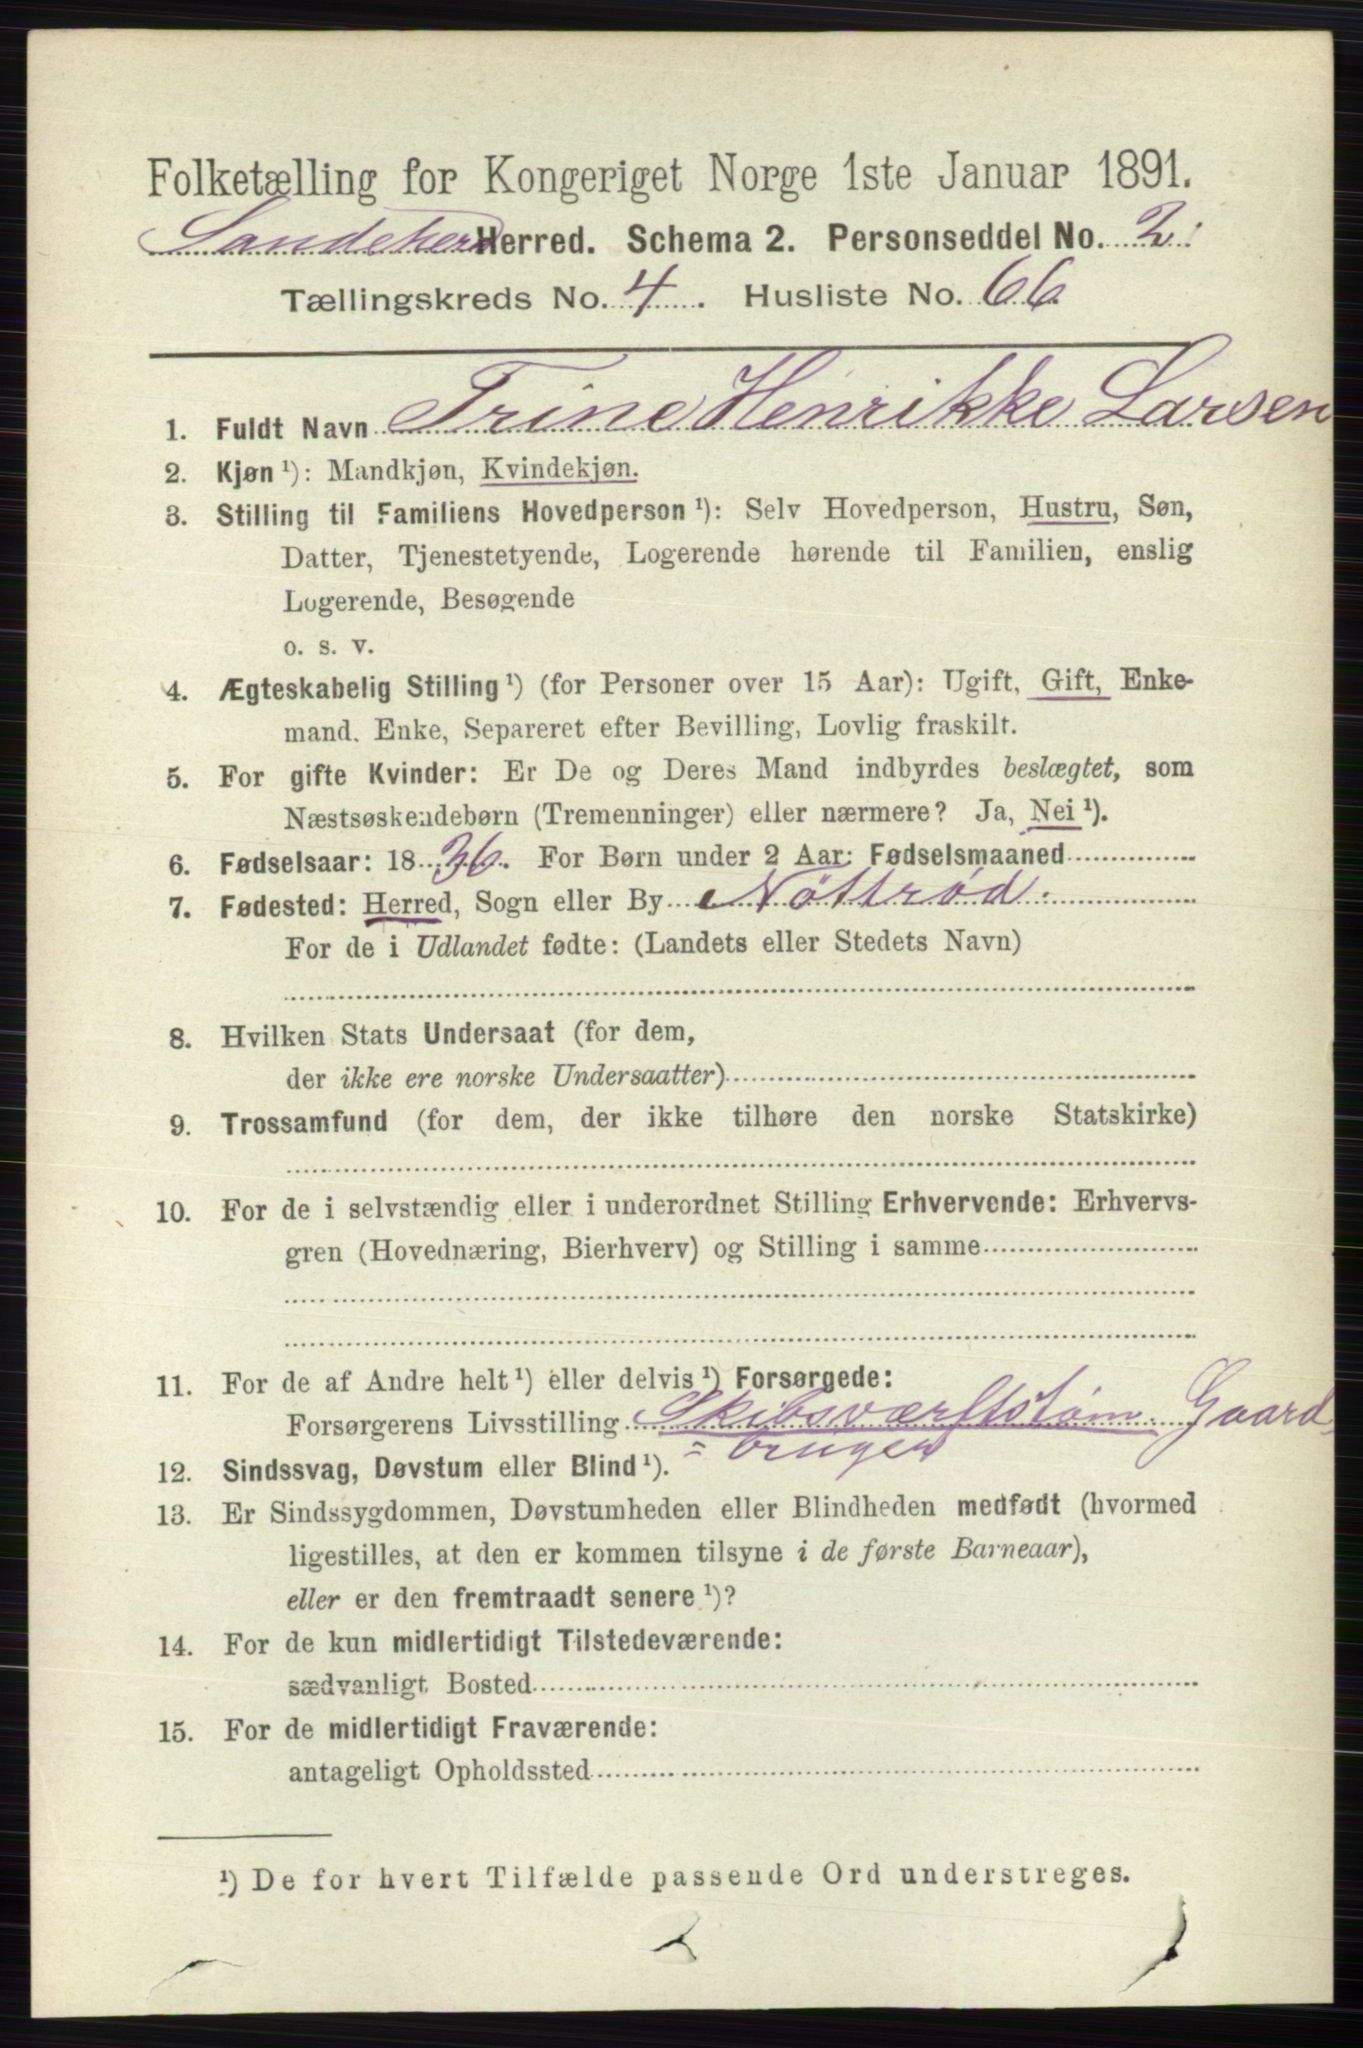 Folketælling for Kongeriget Norge 1ste Januar 1891.
Sandeherred Herred. Schema 2. Personseddel No. 2.
Tællingskreds No. 4. Husliste No. 66
1. Fuldt Navn Trine Henrikke Larsen
2. Kjøn ¹): Mandkjøn, Kvindekjøn.
3. Stilling til Familiens Hovedperson ¹): Selv Hovedperson, Hustru, Søn,
Datter, Tjenestetyende, Logerende hørende til Familien, enslig
Logerende, Besøgende
o. s. v.
4. Ægteskabelig Stilling ¹) (for Personer over 15 Aar): Ugift, Gift, Enke-
mand, Enke, Separeret efter Bevilling, Lovlig fraskilt.
5. For gifte Kvinder: Er De og Deres Mand indbyrdes beslægtet, som
Næstsøskendebørn (Tremenninger) eller nærmere? Ja, Nei ¹).
6. Fødselsaar: 1836. For Børn under 2 Aar: Fødselsmaaned
7. Fødested: Herred, Sogn eller By Nøtterød.
For de i Udlandet fødte: (Landets eller Stedets Navn)
8. Hvilken Stats Undersaat (for dem,
der ikke ere norske Undersaatter)
9. Trossamfund (for dem, der ikke tilhøre den norske Statskirke)
10. For de i selvstændig eller i underordnet Stilling Erhvervende: Erhvervs-
gren (Hovednæring, Bierhverv) og Stilling i samme
11. For de af Andre helt ¹) eller delvis ¹) Forsørgede:
Forsørgerens Livsstilling Skibsværftstøm. Gaard
= bruger
12. Sindssvag, Døvstum eller Blind ¹).
13. Er Sindssygdommen, Døvstumheden eller Blindheden medfødt (hvormed
ligestilles, at den er kommen tilsyne i de første Barneaar),
eller er den fremtraadt senere ¹)?
14. For de kun midlertidigt Tilstedeværende:
sædvanligt Bosted
15. For de midlertidigt Fraværende:
antageligt Opholdssted
¹) De for hvert Tilfælde passende Ord understreges.